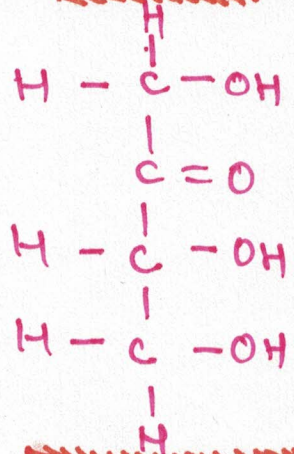 H
H - C - OH
C = O
H - C - OH
H - C - OH
H